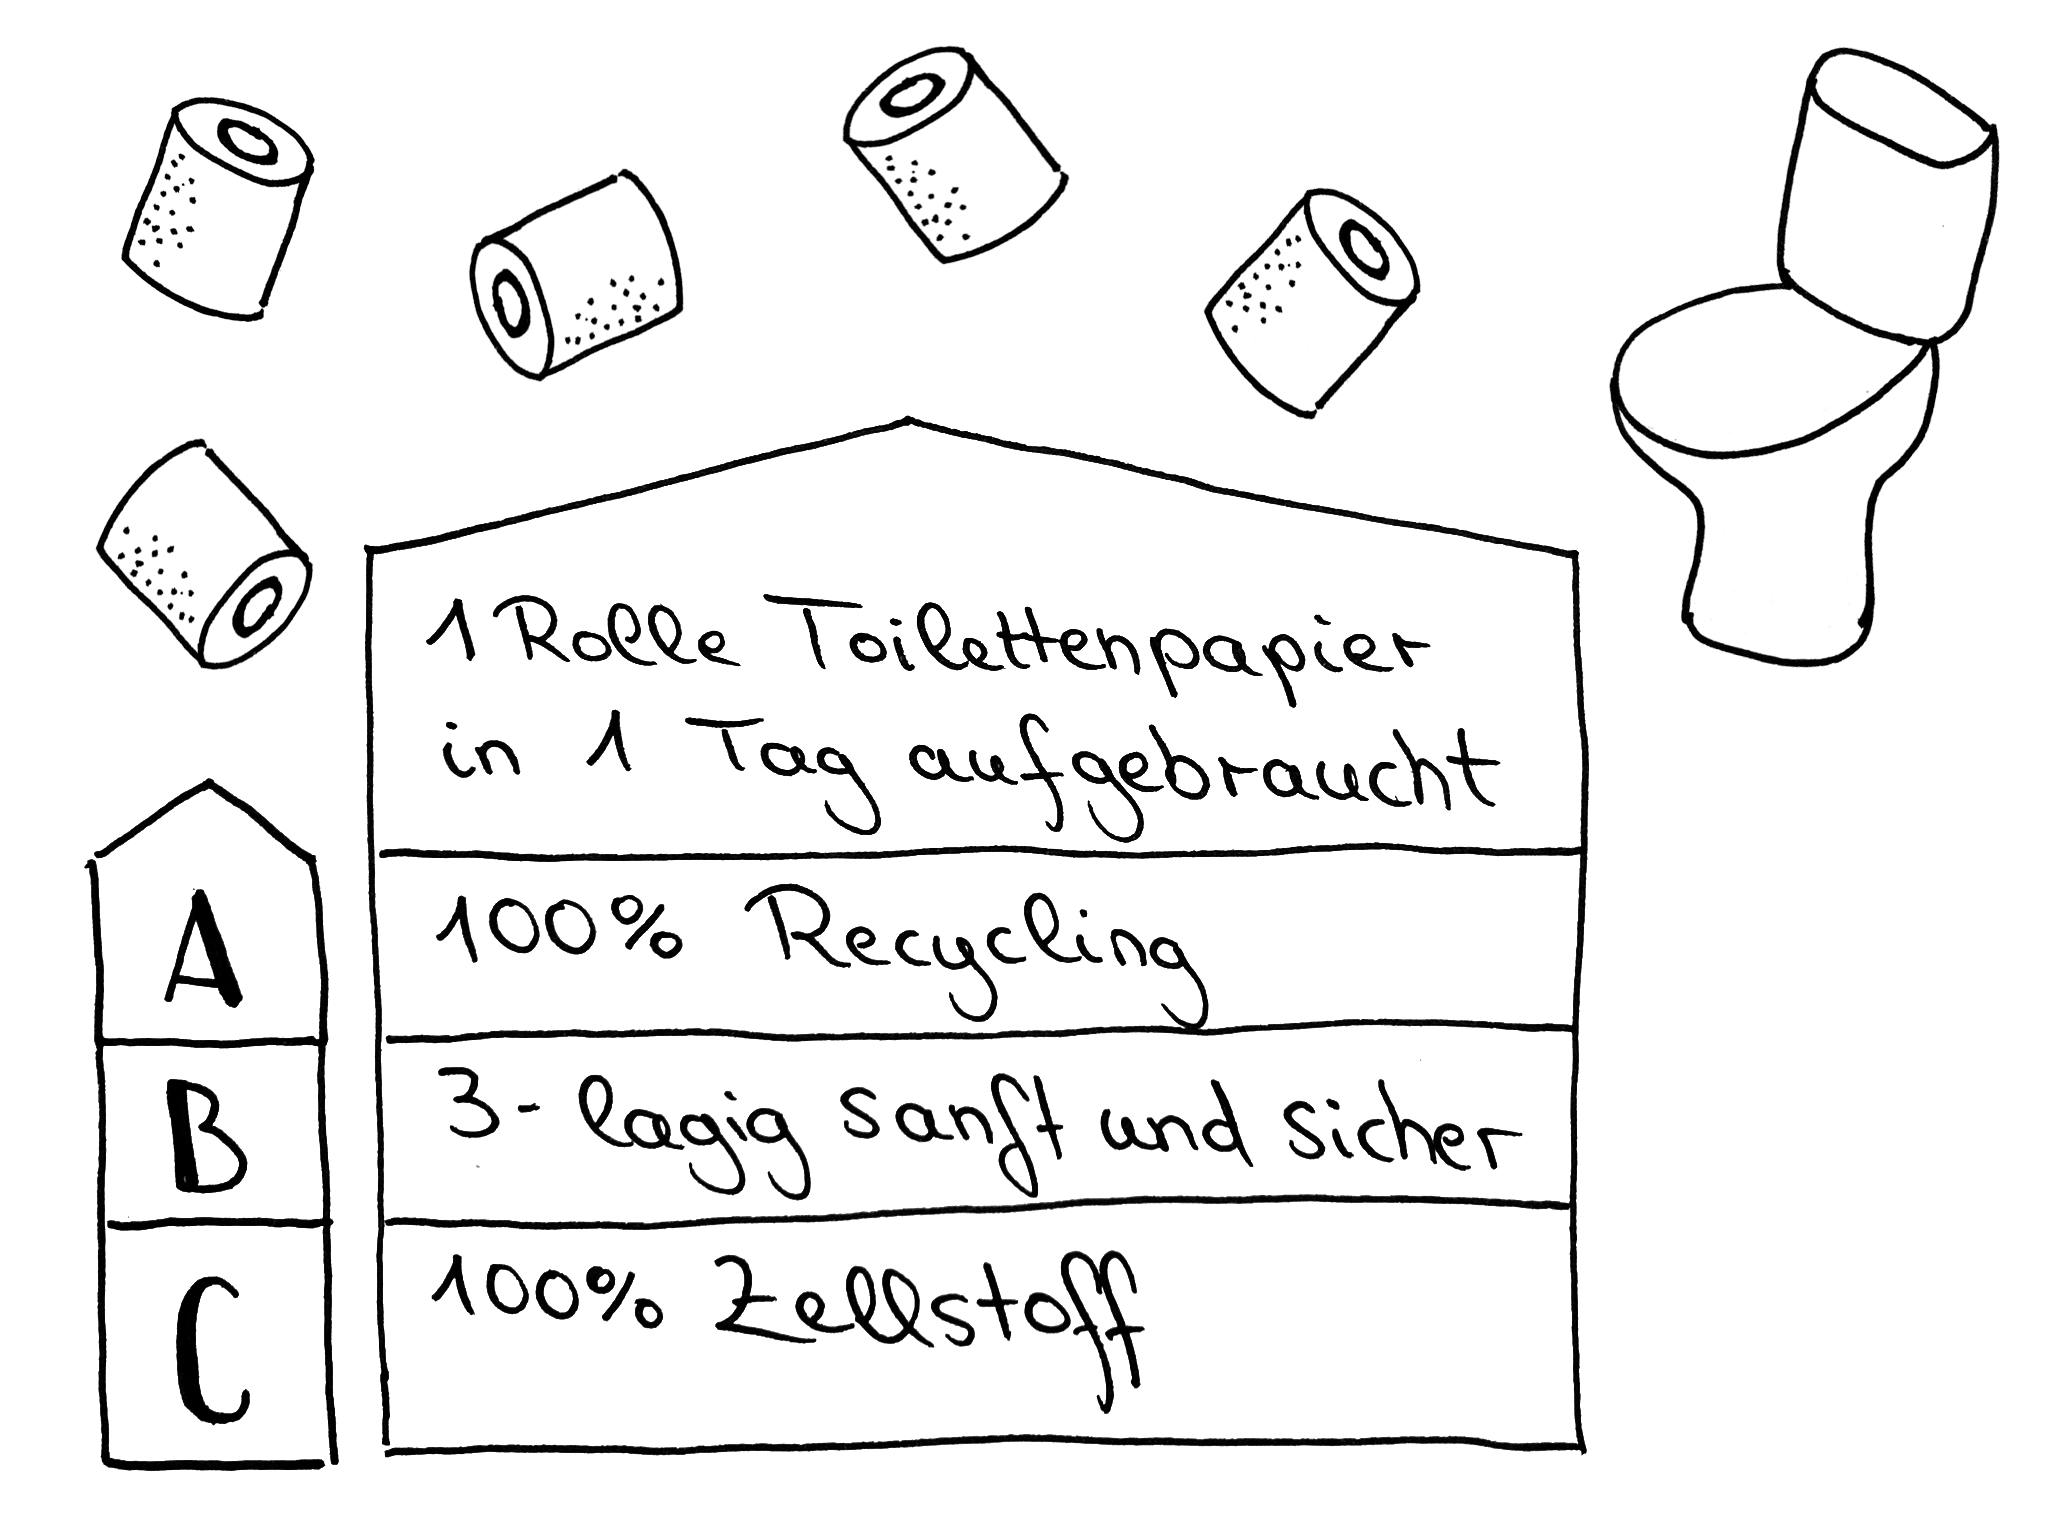 1 Rolle Toilettenpapier
in 1 Tag aufgebraucht
A
100% Recycling
B
3-lagig sanft und sicher
C
100% Zellstoff